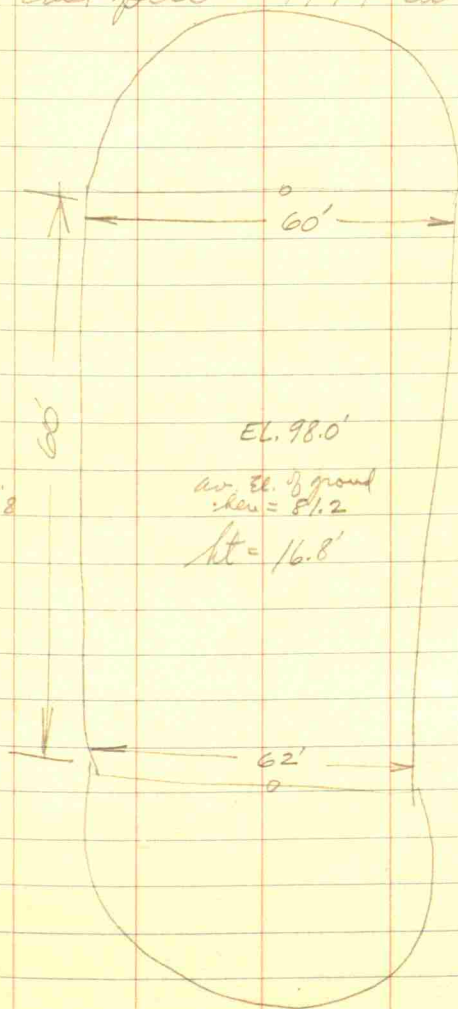 60'
60'
EL. 98.0'
av. El. of ground
here = 81.2
ht = 16.8'
8
62'